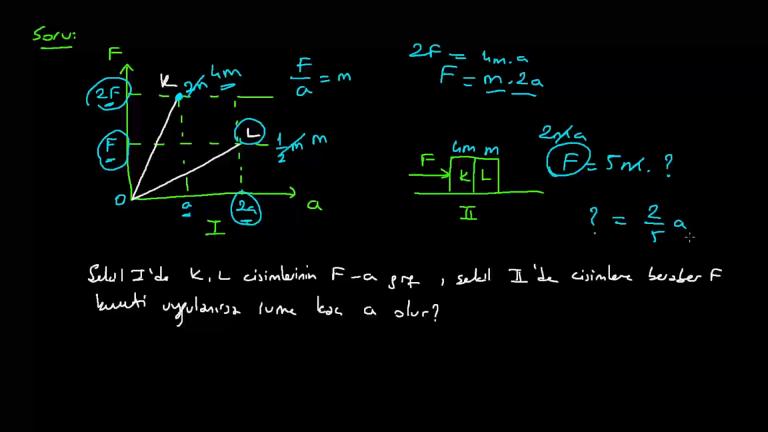 Soru:
F
K 2m 4m
2F
F/a = m
F
L 1/2 m m
0 a 2a a
I
2F = 4m.a
F = m.2a
4m m
F K L
II
2ma
F = 5m.?
? = 2/5 a
Şekil I'de K, L cisimlerinin F-a grf, şekil II'de cisimlere beraber F
kuvveti uygulanırsa ivme kaç a olur?